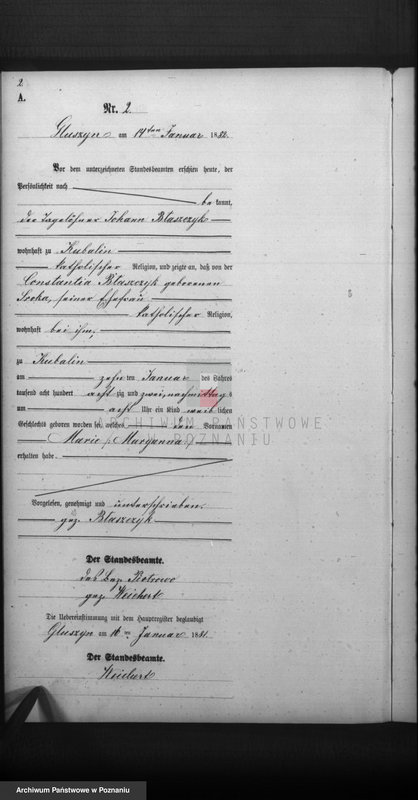 2
A.
Nr. 2
Gluszyn am 14ten Januar 1882.
Vor dem unterzeichneten Standesbeamten erschien heute, der
Persönlichkeit nach
bekannt,
der Tagelöhner Johann Błaszczyk
wohnhaft zu Kubalin
katholischer Religion, und zeigte an, daß von der
Constantia Błaszczyk geborenen
Sroka, seiner Ehefrau
katholischer Religion,
wohnhaft bei ihm,
zu Kubalin
am zehnten Januar des Jahres
tausend acht hundert achtzig und zwei, nachmittags
um acht Uhr ein Kind weiblichen
Geschlechts geboren worden sei, welches Vornamen
Marie (Maryanna)
erhalten habe.
ARCHIWUM PAŃSTWOWE
W POZNANIU
Vorgelesen, genehmigt und unterschrieben.
gez. Błaszczyk
Der Standesbeamte.
gez. Weichert
Die Uebereinstimmung mit dem Hauptregister beglaubigt
Gluszyn am 16ten Januar 188
Der Standesbeamte.
Weichert
Archiwum Państwowe w Poznaniu